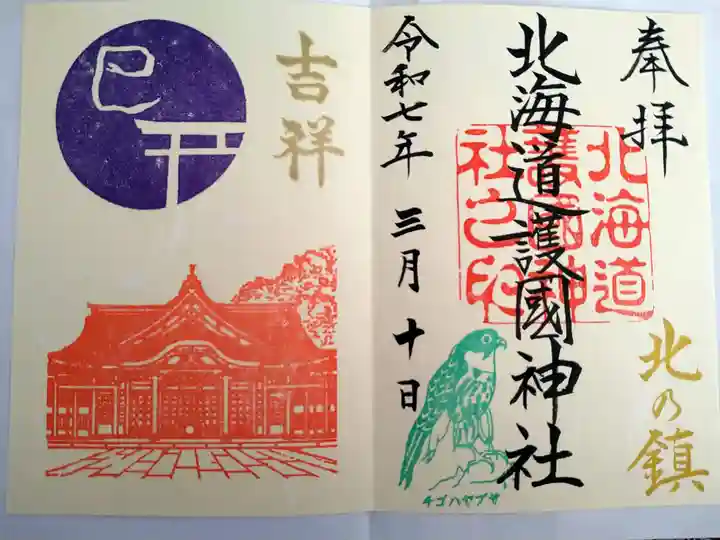 奉拝
北の鎮
北海道
護國神
社之印
北海道護國神社
チゴハヤブサ
令和七年 三月 十日
吉祥
巳